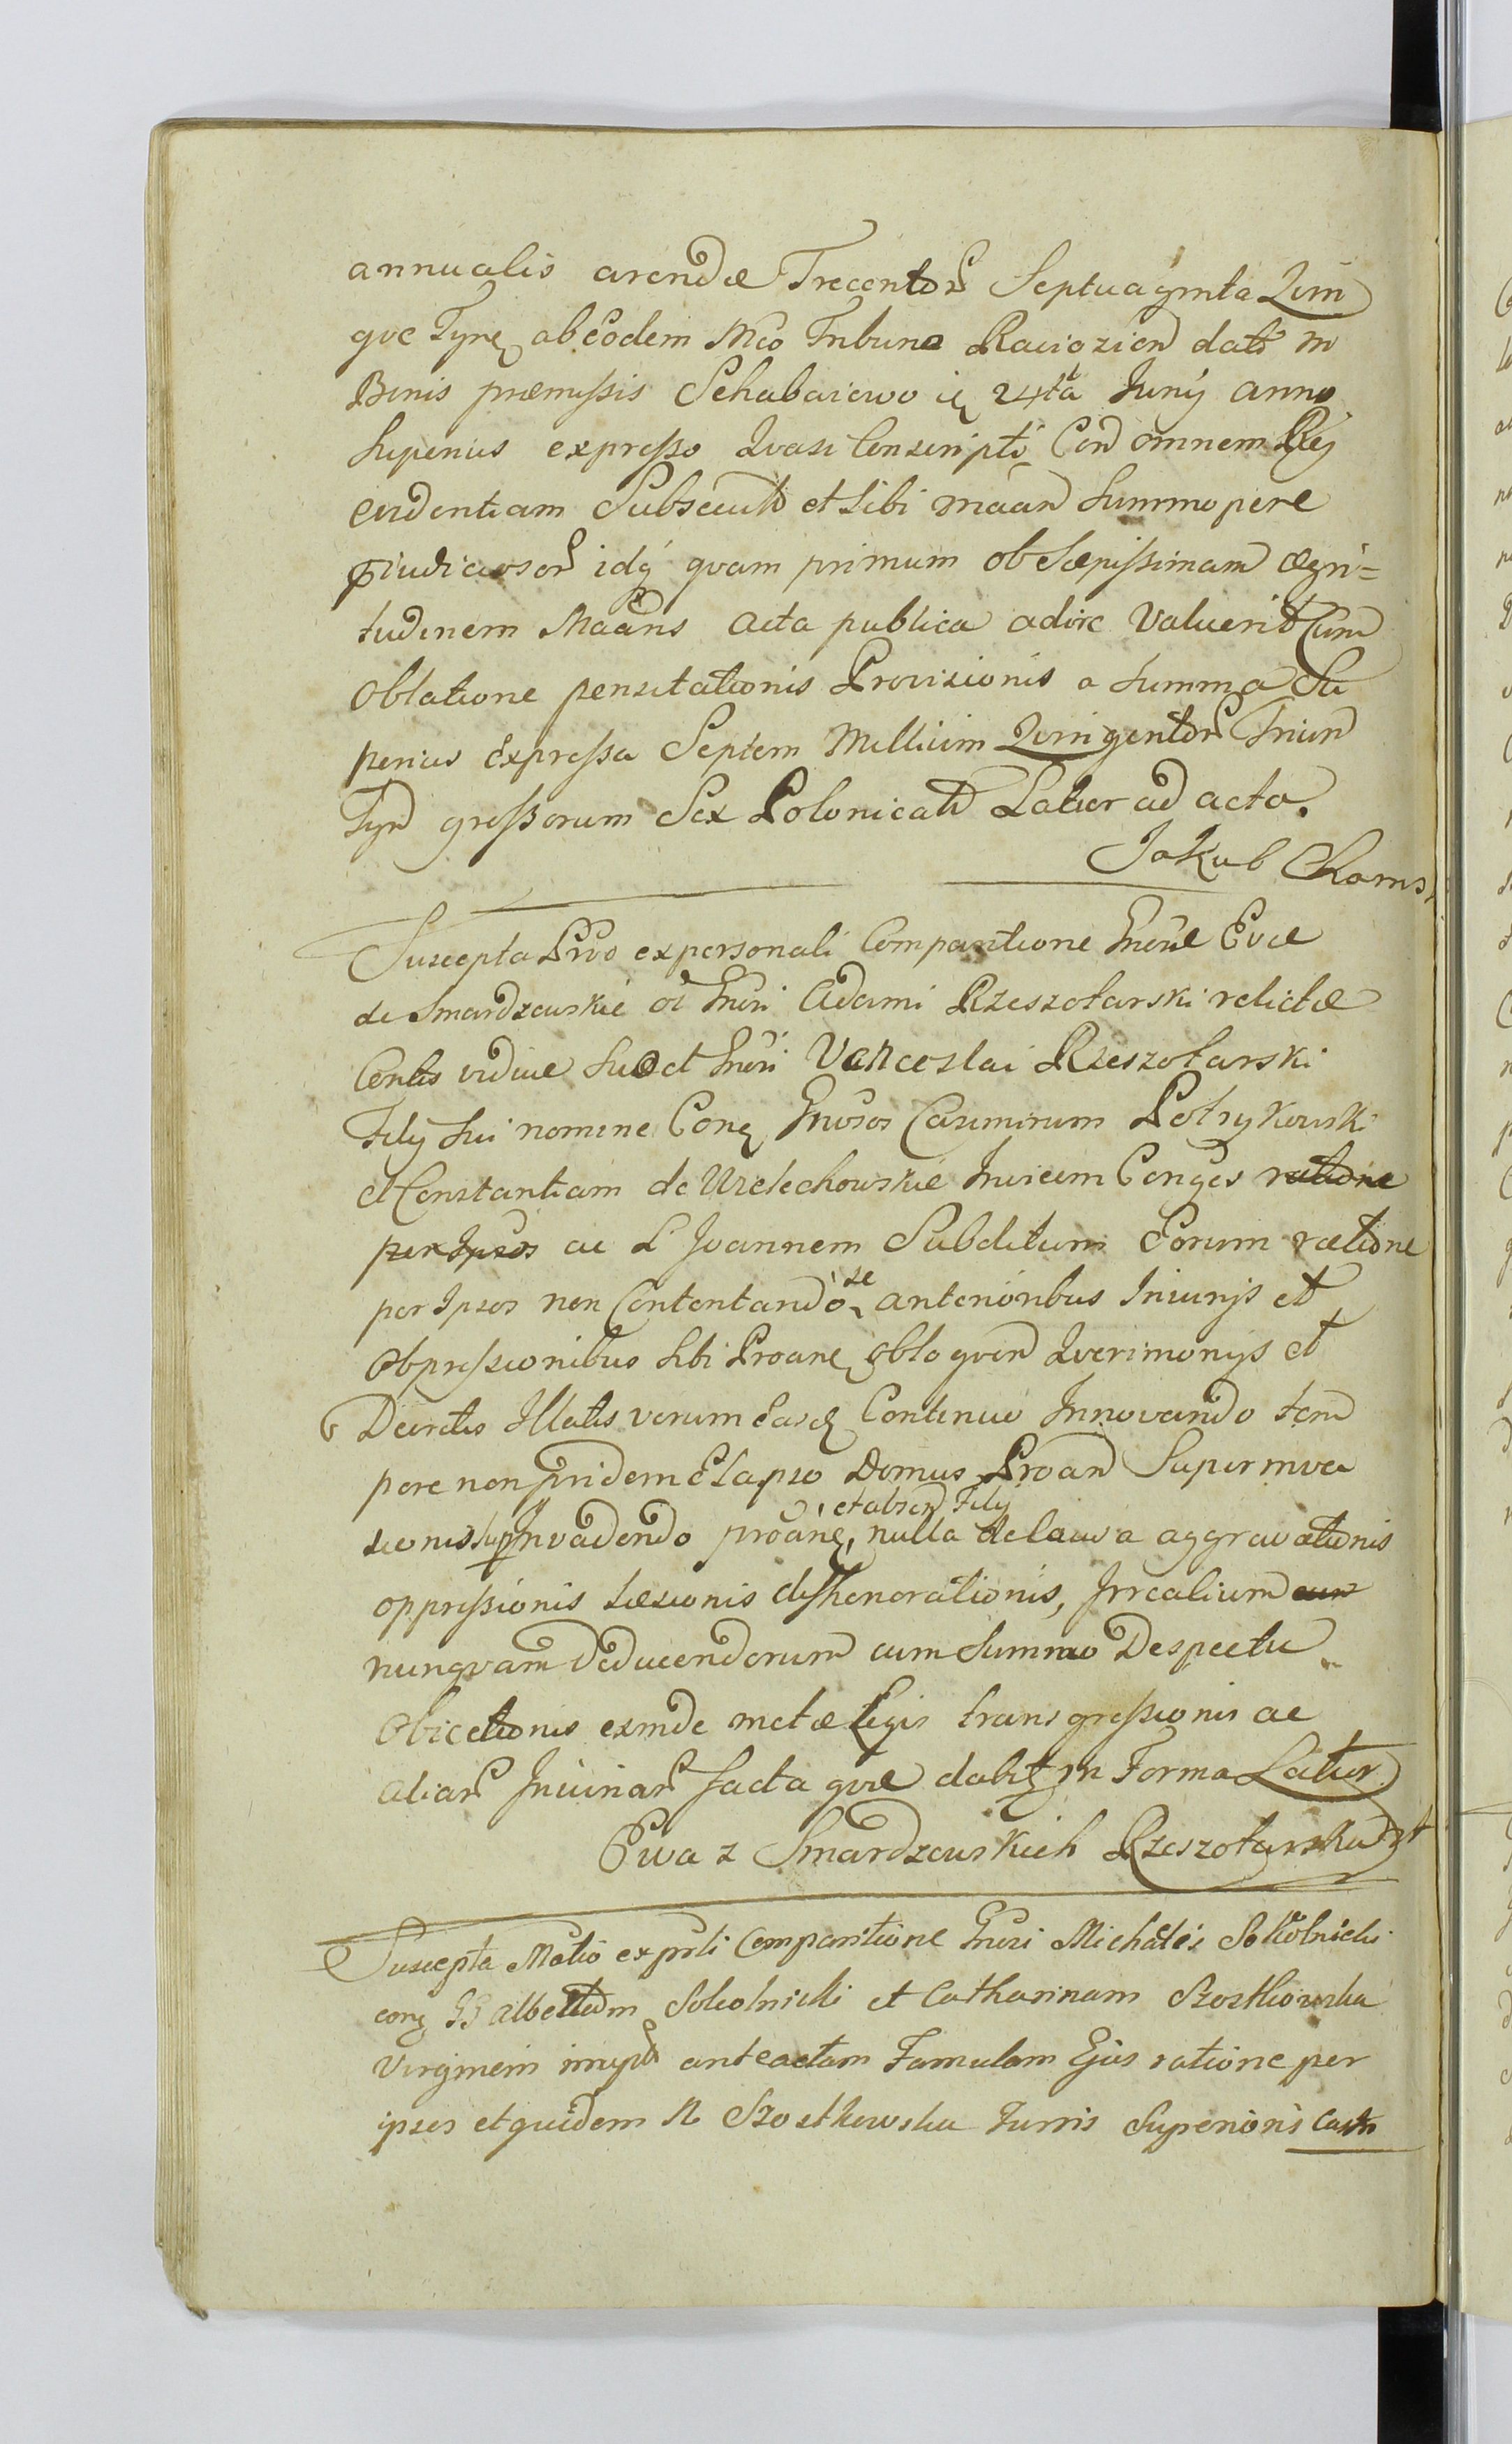 annualis arendæ Trecentor Septuaginta Quin
que Tynf ab eodem Mco Tribuno Raciązien dati in
Bonis præmissis Schabaiewo ie 24ta Juny anno
superius expresso Quasi Conscripti Con omnem Rey
evidentiam Subsecuti et sibi maan summopere
piudiciosor idq quam primum ob Sæpissimam ægri=
tudinem Maans acta publica adire Valuerit Cum
Oblatione pensitationis Provisionis a summa Su
perius Expressa Septem Millium Quingentor Trium
Tyn grossorum Sex Polonicati Latur ad acta.
Jakub Choms
Suscepta Pro ex personali Comparitione Gnosæ Evæ
de Smardzewskie ol Gnosi Adami Rzeszotarski relictæ
Contis viduæ suo et Gnosi Venceslai Rzeszotarski
Fily sui nomine Con Gnosos Casimirum Potrykowski
et Constantiam de Wzelechowskie Invicem Conges ratione
per Ipsos ac L Joannem Subditum Eorum ratione
per Ipsos non Contentando se anterioribus Iniurijs et
Obpressionibus sibi Proane obloquen Querimonijs et
Decretis Illatis verum Easq Continuo Innovando tem
pore non pridem Elapso Domus Proan Supermva
sionis sup Invadendo proane, et absen Fily nulla de causa aggravationis
oppressionis læsionis dishonorationis, Irrealium cum
nunquam Deducendorum cum Summo Despectu
Obiectionis exinde metæ Legis transgressionis ac
aliar Iniuriar facta quæ dabit in Forma Latur
Ewa z Smardzewskich Rzeszotarska
Suscepta Motio ex prsli Comparitione Gnosi Michaelis Sokolnicki
con GG Albertum Sokolnicki et Catharinam Szostkowska
Virginem anteactam Famulam Ejus ratione per
ipsos et quidem N Szostkowska Turris Superioris Castr